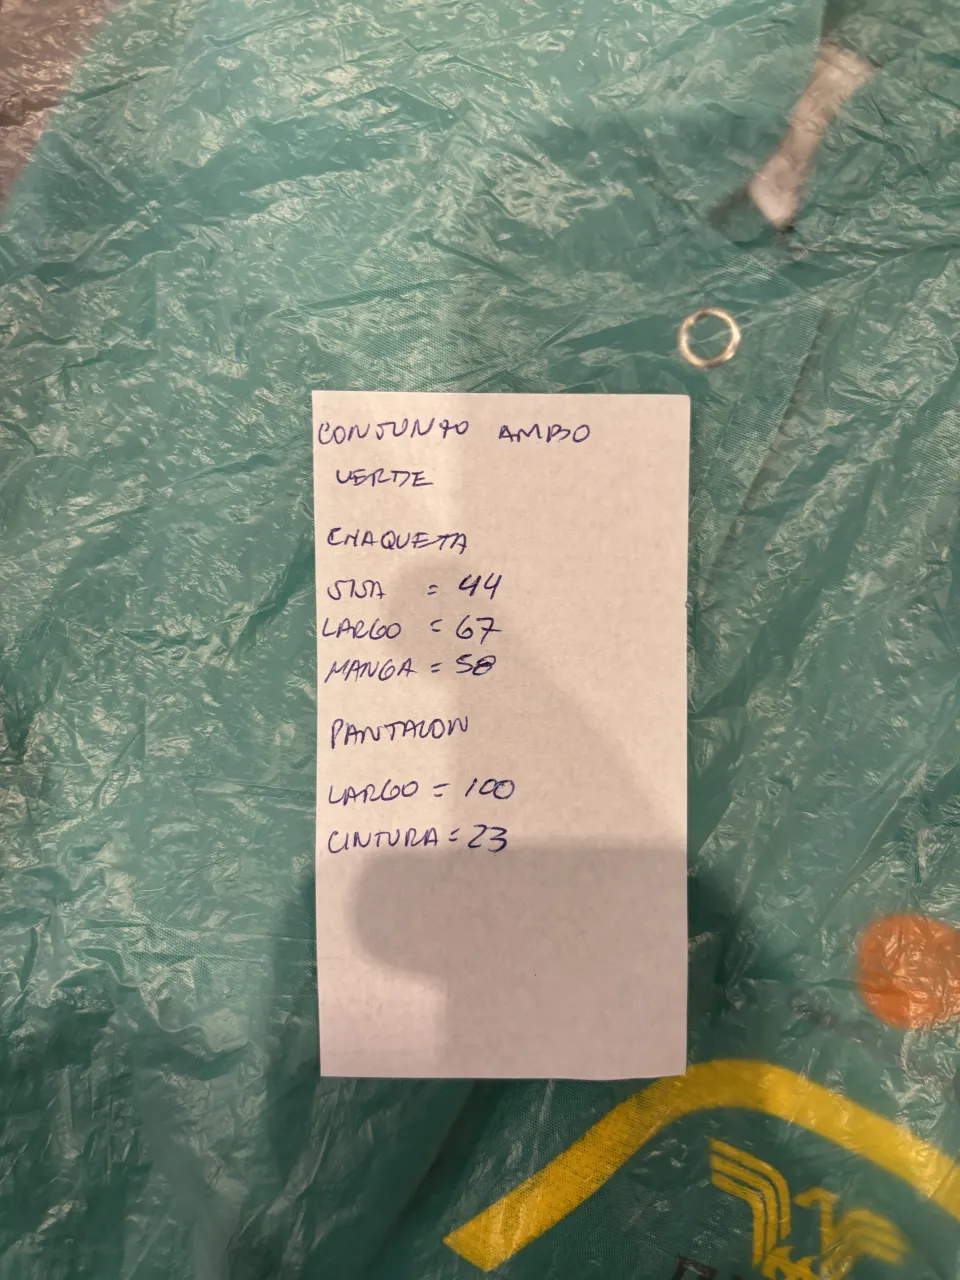 CONJUNTO AMBO
VERDE
CHAQUETA
SISA = 44
LARGO = 67
MANGA = 58
PANTALON
LARGO = 100
CINTURA = 23